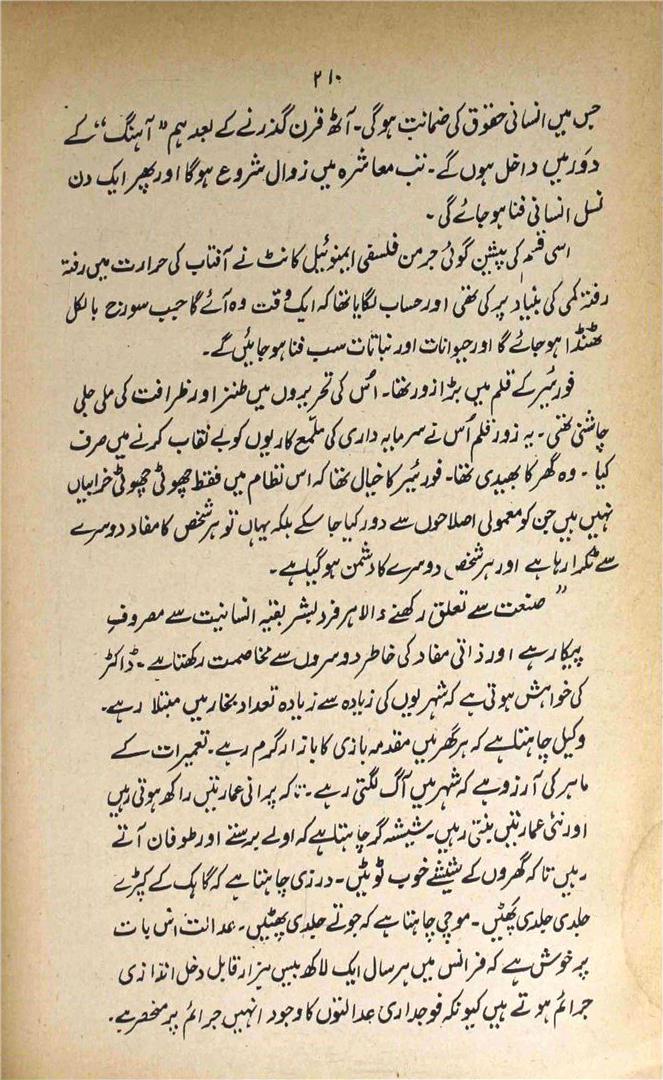 ۲۱۰
جس میں انسانی حقوق کی ضمانت ہوگی۔ آٹھ قرن گذرنے کے بعد ہم ”آہنگ“ کے
دَور میں داخل ہوں گے۔ تب معاشرہ میں زوال شروع ہوگا اور پھر ایک دن
نسل انسانی فنا ہو جائے گی۔
اسی قسم کی پیشین گوئی جرمن فلسفی ایمنوئیل کانٹ نے آفتاب کی حرارت میں رفتہ
رفتہ کمی کی بنیاد پر کی تھی اور حساب لگایا تھا کہ ایک وقت وہ آئے گا جب سورج بالکل
ٹھنڈا ہو جائے گا اور حیوانات اور نباتات سب فنا ہو جائیں گے۔
فورئیر کے قلم میں بڑا زور تھا۔ اُس کی تحریروں میں طنز اور ظرافت کی ملی جلی
چاشنی تھی۔ یہ زورِ قلم اُس نے سرمایہ داری کی ملمّع کاریوں کو بے نقاب کرنے میں صرف
کیا۔ وہ گھر کا بھیدی تھا۔ فورئیر کا خیال تھا کہ اس نظام میں فقط چھوٹی چھوٹی خرابیاں
نہیں ہیں جن کو معمولی اصلاحوں سے دور کیا جا سکے بلکہ یہاں تو ہر شخص کا مفاد دوسرے
سے ٹکرا رہا ہے اور ہر شخص دوسرے کا دشمن ہو گیا ہے۔
”صنعت سے تعلق رکھنے والا ہر فرد بشر بقیہ انسانیت سے مصروفِ
پیکار ہے اور ذاتی مفاد کی خاطر دوسروں سے مخاصمت رکھتا ہے۔ ڈاکٹر
کی خواہش ہوتی ہے کہ شہریوں کی زیادہ سے زیادہ تعداد بخار میں مبتلا رہے۔
وکیل چاہتا ہے کہ ہر گھر میں مقدمہ بازی کا بازار گرم رہے۔ تعمیرات کے
ماہر کی آرزو ہے کہ شہر میں آگ لگتی رہے۔ تاکہ پرانی عمارتیں راکھ ہوتی رہیں
اور نئی عمارتیں بنتی رہیں۔ شیشہ گر چاہتا ہے کہ اولے برسنے اور طوفان آتے
رہیں تاکہ گھروں کے شیشے خوب ٹوٹیں۔ درزی چاہتا ہے کہ گاہک کے کپڑے
جلدی جلدی پھَٹیں۔ موچی چاہتا ہے کہ جوتے جلدی پھٹیں۔ عدالت اس بات
پر خوش ہے کہ فرانس میں ہر سال ایک لاکھ بیس ہزار قابل دخل اندازی
جرائم ہوتے ہیں کیونکہ فوجداری عدالتوں کا وجود انہیں جرائم پر منحصر ہے۔